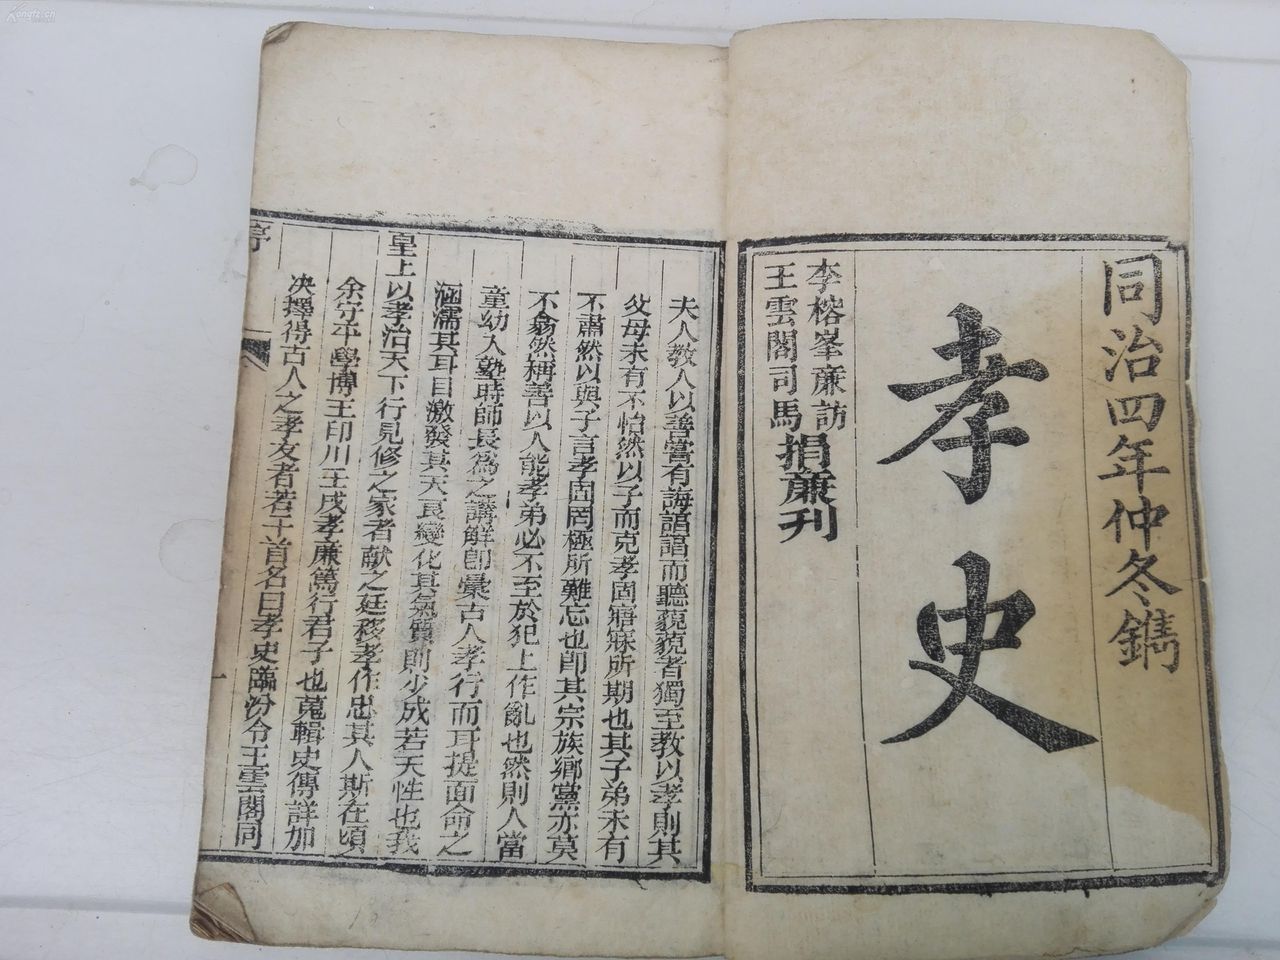 同治四年仲冬鐫
孝史
李榕峯廉訪
王雲閣司馬
捐廉刊
夫人敎人以善嘗有誨諄諄而聽藐藐者獨至教以孝則其
父母未有不怡然以子而克孝固寤寐所期也其子弟未有
不肅然以與子言孝固罔極所難忘也卽其宗族鄉黨亦莫
不翕然稱善以人能孝弟必不至於犯上作亂也然則人當
童幼入塾時師長為之講解卽彙古人孝行而耳提面命之
涵濡其耳目激發其天良變化其氣質則少成若天性也我
皇上以孝治天下行見修之家者献之廷移孝作忠其人斯在頃
余守平學博王印川王戌孝廉篤行君子也蒐輯史傳詳加
决擇得古人之孝友者若干首名曰孝史臨汾令王雲閣同
序
一
Kongfz.cn